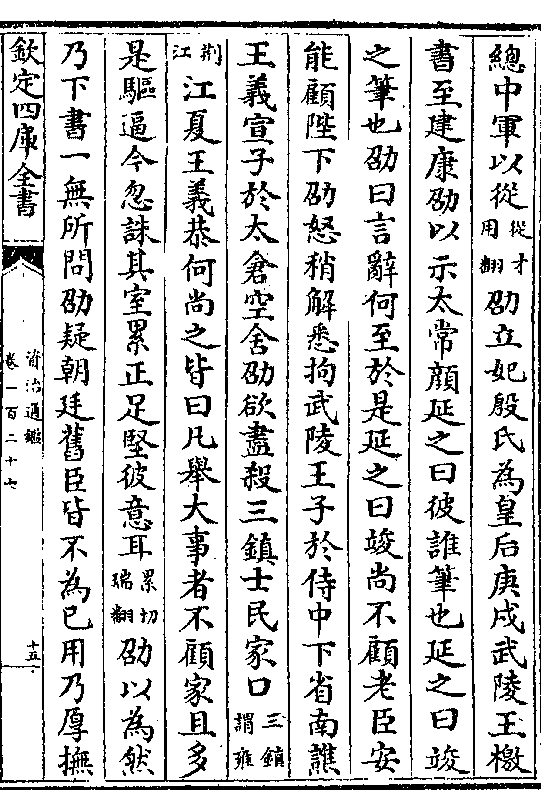 總中軍以從從才用翻劭立妃殷氏為皇后庚戌武陵王檄
書至建康劭以示太常顔延之曰彼誰筆也延之曰竣
之筆也劭曰言辭何至於是延之曰竣尚不顧老臣安
能顧陛下劭怒稍解悉拘武陵王子於侍中下省南譙
王義宣子於太倉空舍劭欲盡殺三鎮士民家口三鎮謂雍
荆江江夏王義恭何尚之皆曰凡舉大事者不顧家且多
是驅逼今忽誅其室累正足堅彼意耳累切瑞翻劭以為然
乃下書一無所問劭疑朝廷舊臣皆不為已用乃厚撫
欽定四庫全書
資治通鑑
卷一百二十七
十五